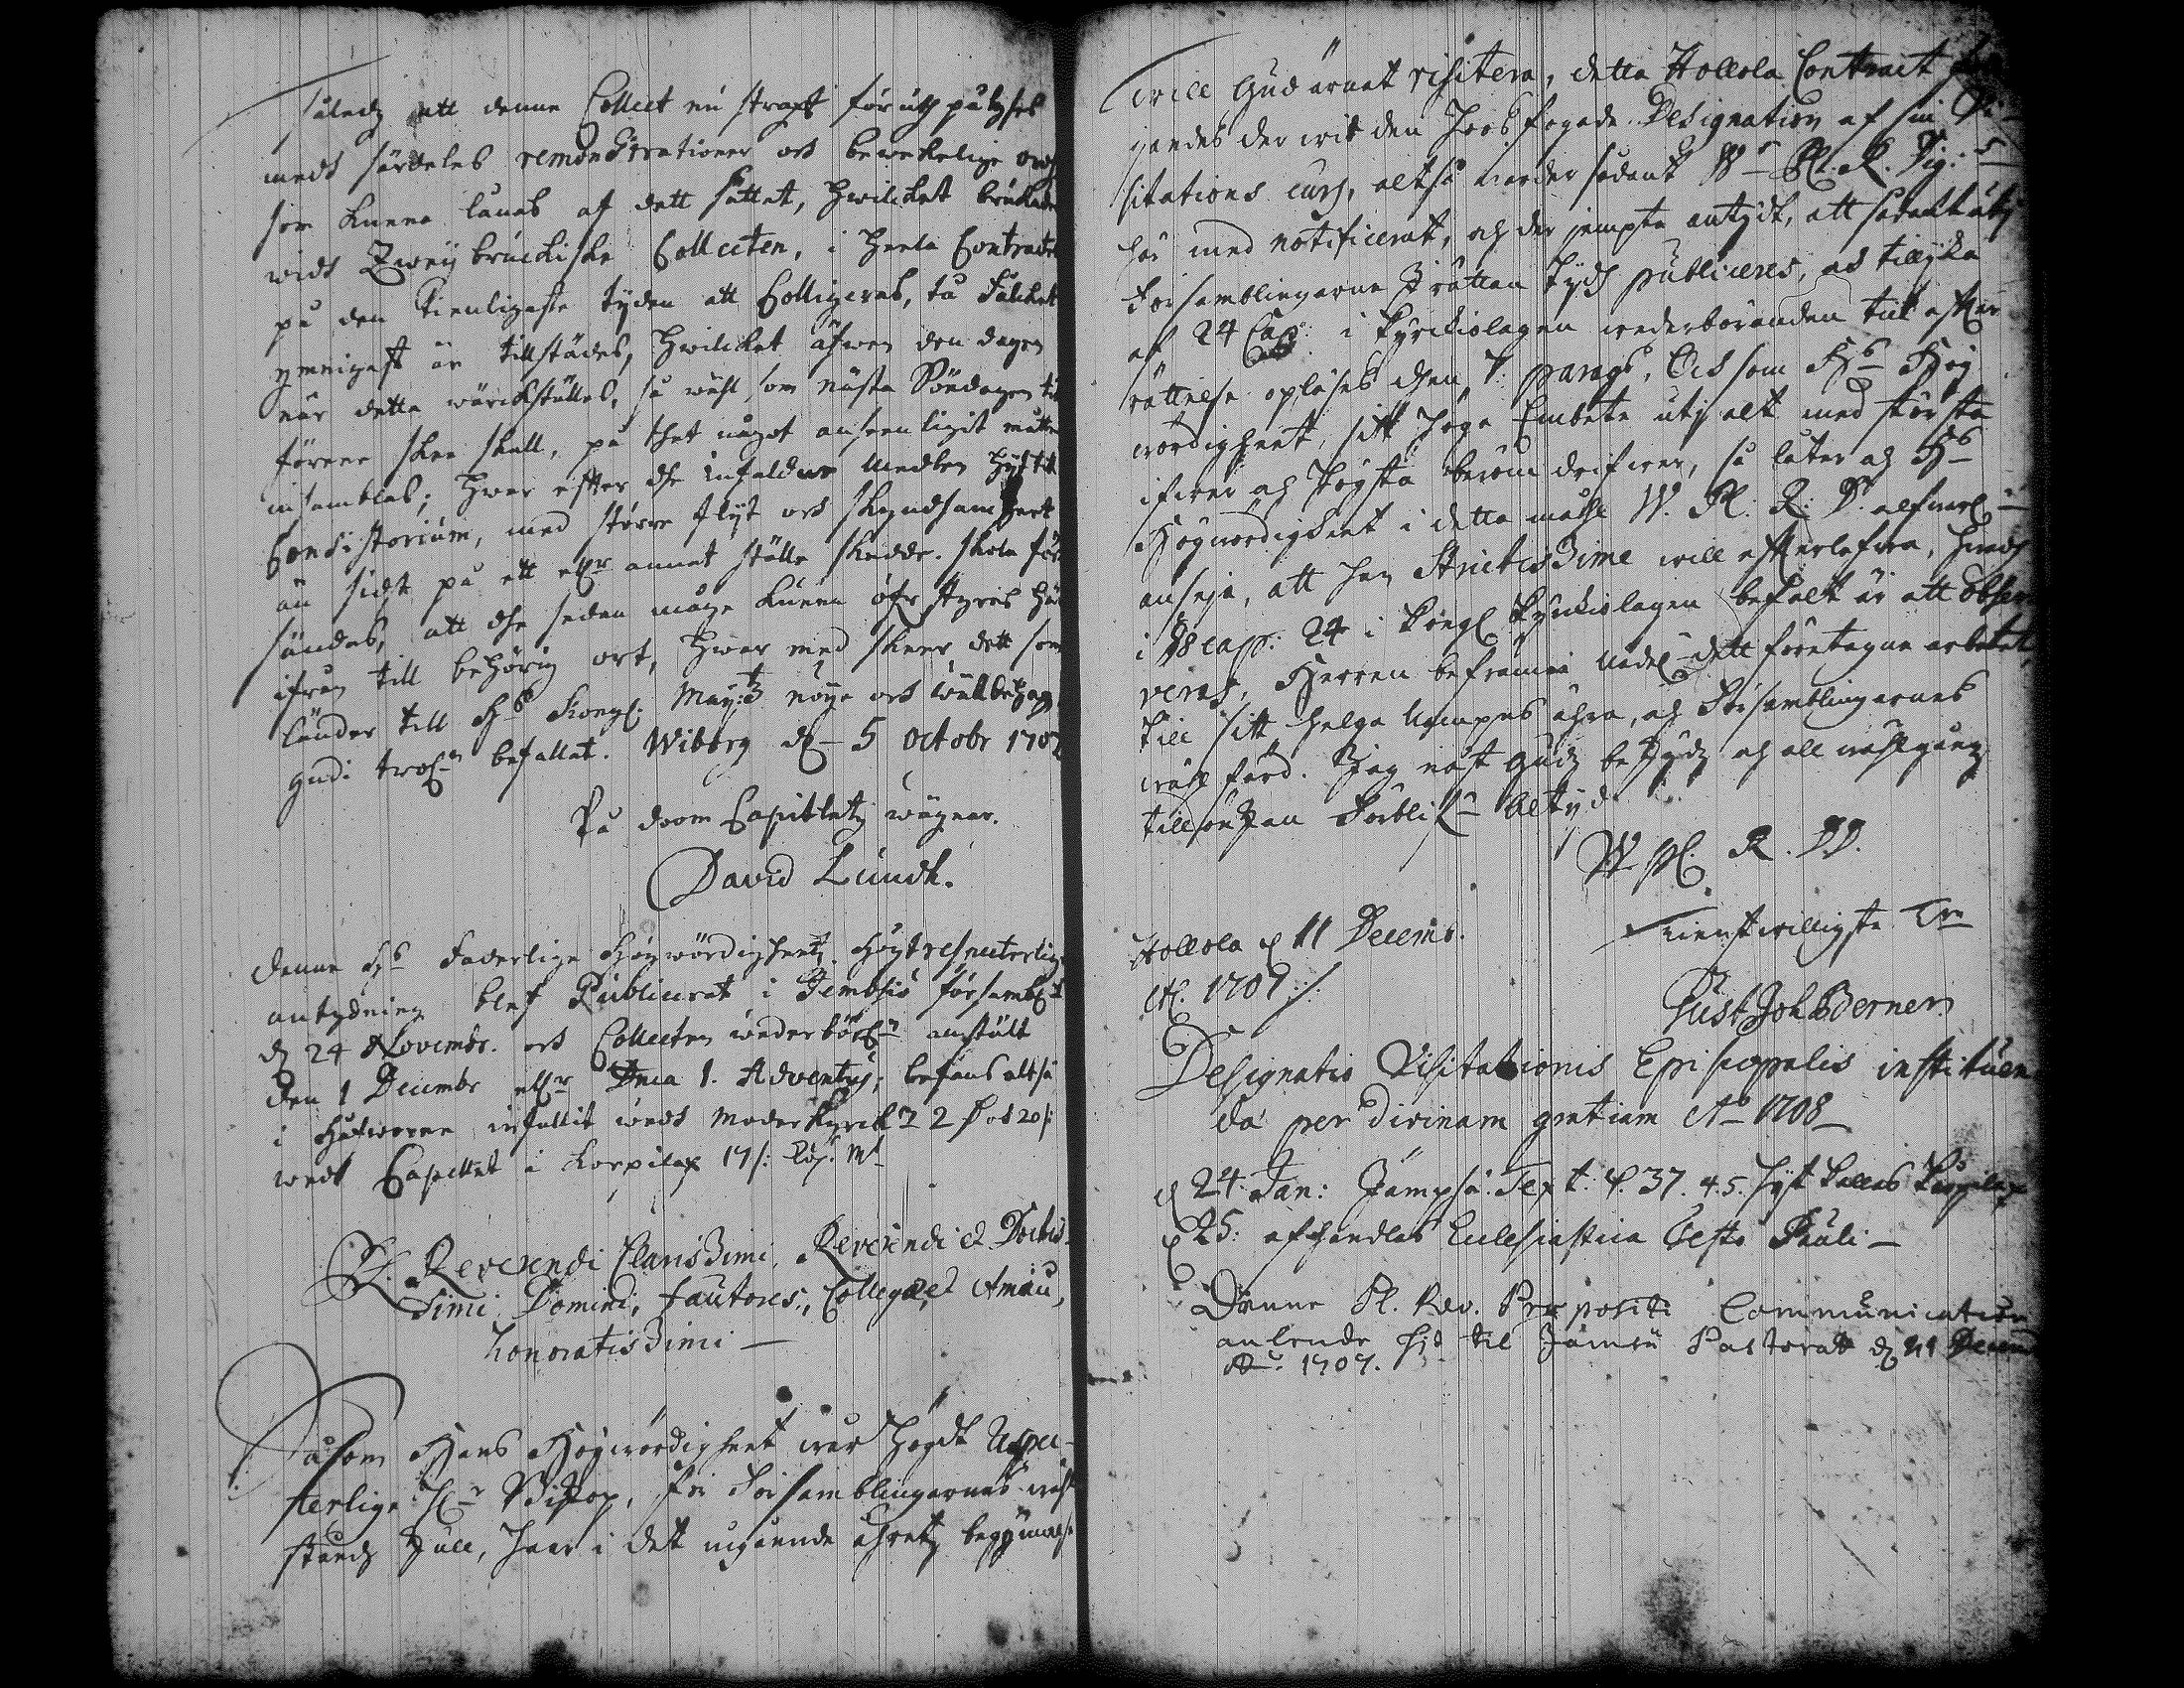 Således att denne Collect nu strapt föruth pålyses
medh särdeles remonstrationer och bewekelige ord
som kunna lånas af dett sättet, hwilcket brukades
widh Zweybruckiske Collecten, i heela Contractet
på den tienligaste tyden att Colligeras, då Fålcket
ymnigast är tillstädes, hwilcket äfwen den dagen
när dette wärckställes, så wähl som nästa Söndagen till
förene skee skall, på thet något ansenligit måtte
insamblas; hwar efter dhe infaldne medlen hijt till
Consistorium, med större flijt och skyndsamheet
än sidst på ett eller annat ställe skedde. skola för
sändas, att dhe sedan måge kunna öfr styras här
ifrån till behörig ort, hwar med skeer dett som
länder till Hs Kongl. May:tz nöye och wälbehag.
Gudi trol:n befallat. Wiborg d 5 Octobr 1707
På doom Capitletz wägnar.
David Lundh.
Denne Hs Faderlige Högwördigheetz. Höghtrespecterlige
antydning blef Publicerat i Jembsiö församblt
d 24 Novembr. och Collecten wederbörl:n anstält
den 1 Decembr eller Dnca 1. Adventus, befans altså
i Håfwarne infallit wedh Moderkyrck: 2 och 20
wedh Capellet i Korpilax 17
Pl. Reverendi Clarissimi, Reverendi et Doctis-
simi Domini, Fautores, Collegæ et Amici,
honoratissimi —
Såsom Hans Högwördigheet wår högdt Respec-
terlige Hr Biskop, för Församblingarnas wäl-
ståndz skull, haar i dett ingående åhretz begynnelse
will Gud ärnat visitera, detta Hollola Contract
jandes der wid den hoosfogade Designation af sin Vi-
sitations curs, altså warder sådant W Pl. R. Dig:
här med notificerat, och der jempte antydt, att sådant uti
Församblingarna i rättan tydh publiceres, och tillyka
af 24 Cap: i kyrckiolagen wederböranden till efter
rättelse opläses then 7 parag. Och som Hs Hög
wördigheet, sitt höga Embete uti alt med största
ifwer och högsta beröm drifwer, så låter och Hs
Högwördigheet i detta måhl W. Pl. R. D. alfwarl:n
ansäja, att han Strictissime will efterlefwa, hwadh
i 24 i Kongl kyrckiolagen befalt är att obser-
veras, Herren befrämie nådel:n dett företagne arbetet,
till sitt helga Nampns ähra, och Församblingarnas
wällfärd. Jag näst Gudz beskydz och all wählgångz
tillönskan förblifr altyd
W. Pl. R. DD.
Hollola d 11 Decemb.
A. 1707
Tienstwilligste Tn
Gust Joh Berner.
Designatio Visitationis Episcopalis instituen-
da per divinam gratiam Ao 1708
d 24 Jan: Jämpsä. Text. Ψ. 37. 4.5. hijt kallas Korpilax
d 25: afhandlas Ecclesiastica Festo Pauli —
Denne Pl. Rev. Præpositi Communication
anlende hid til Jämsä Pastoratt d 21 Decemb
Ao. 1707.